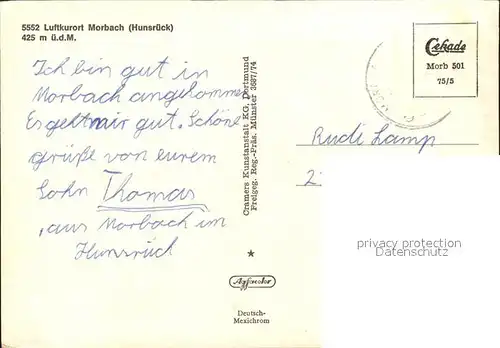 5552 Luftkurort Morbach (Hunsrück)
425 m ü.d.M.
Ich bin gut in
Morbach angekommen
Es geht mir gut. Schöne
grüße von eurem
Sohn Thomas
aus Morbach im
Hunsrück
Cramers Kunstanstalt KG, Dortmund
Freigeg. Reg.-Präs. Münster 3687/74
Agfacolor
Deutsch-
Mexichrom
Cekade
Morb 501
75/5
Rudi Lamp
2
privacy protection
ansichtskarten-lexikon.de